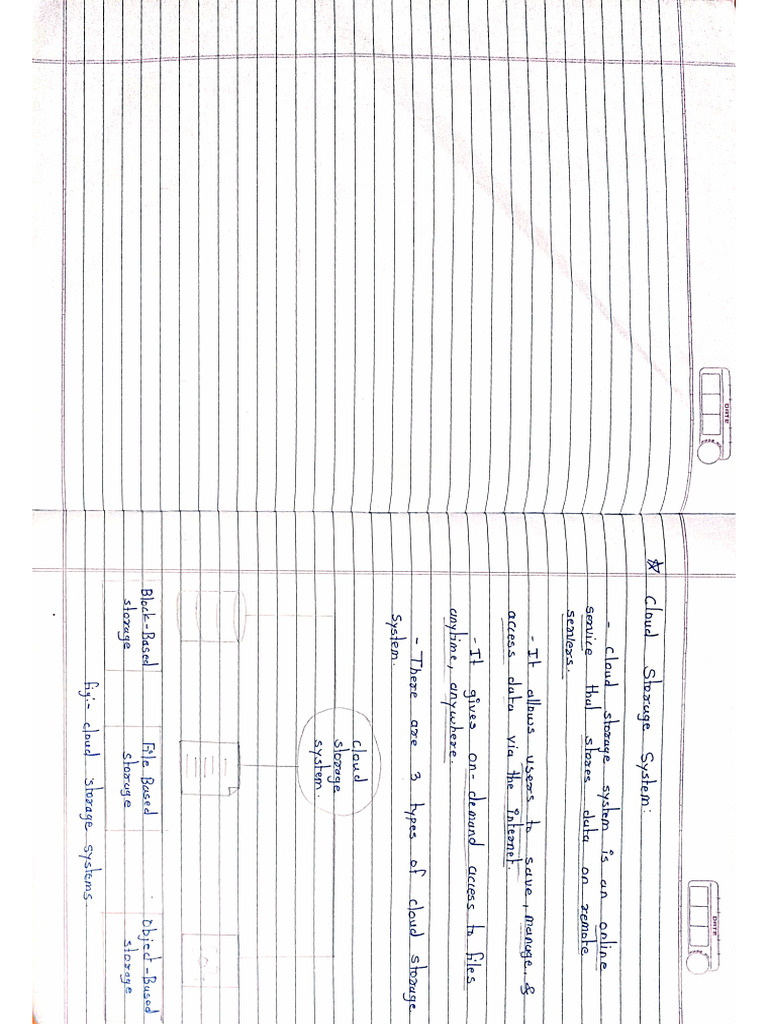 DATE
DATE
☆ Cloud Storage System:
- cloud storage system is an online
service that stores data on remote
servers.
- It allows users to save, manage, &
access data via the internet.
- It gives on-demand access to files
anytime, anywhere.
- There are 3 types of cloud storage
system.
cloud
storage
system.
Block-Based
storage
File Based
storage
Object-Based
storage
fig:- cloud storage systems.